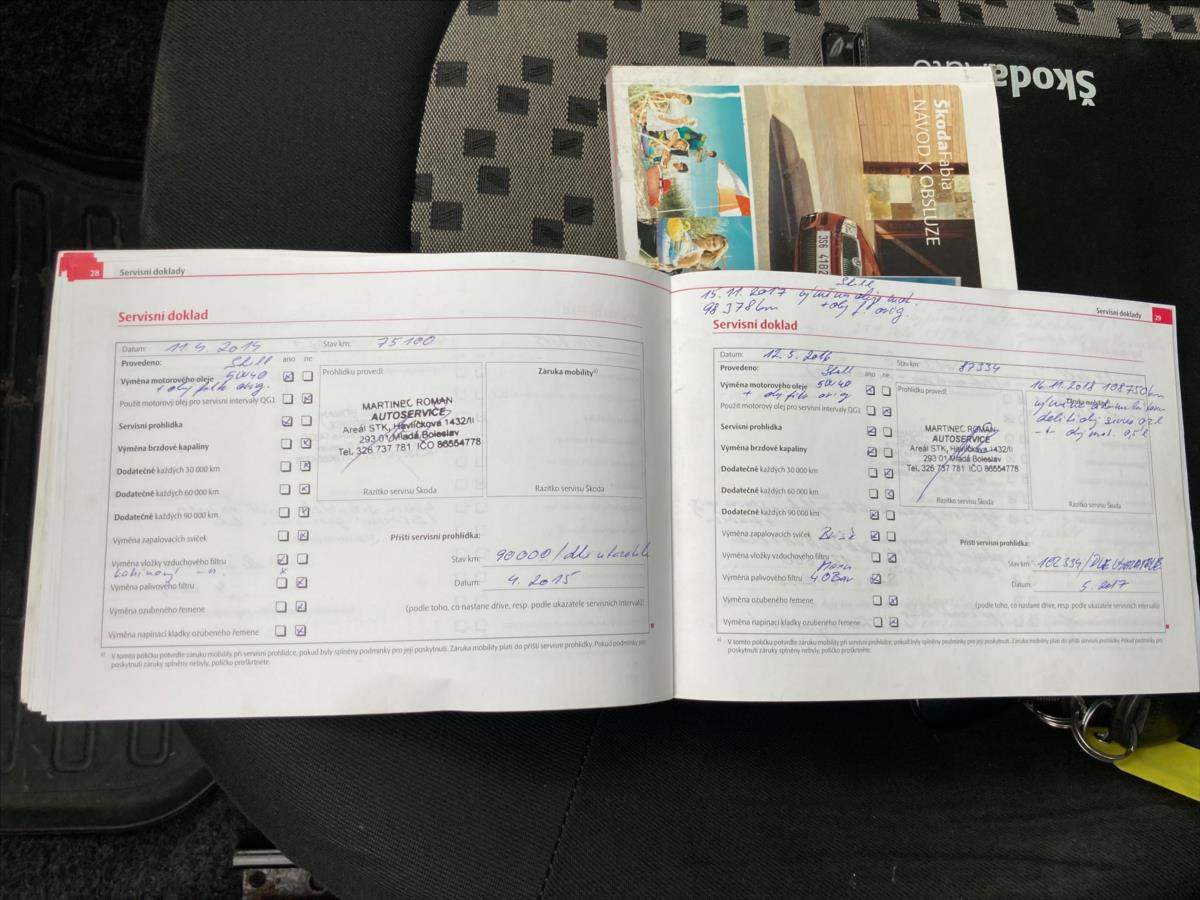 ŠkodaAuto
ŠkodaFabia
NÁVOD K OBSLUZE
3S6 4182
28 Servisní doklady
Servisní doklad
Datum: 11. 4. 2014 Stav km: 75 100
Provedeno: Shell ano ne
Výměna motorového oleje 5W40
+ olej filtr orig.
Použit motorový olej pro servisní intervaly QG1
Servisní prohlídka
Výměna brzdové kapaliny
Dodatečně každých 30 000 km
Dodatečně každých 60 000 km
Dodatečně každých 90 000 km
Výměna zapalovacích svíček
Výměna vložky vzduchového filtru
kabinový -"-
Výměna palivového filtru
Výměna ozubeného řemene
Výměna napínací kladky ozubeného řemene
Prohlídku provedl:
MARTINEC ROMAN
AUTOSERVICE
Areál STK, Havlíčkova 1432/II
293 01 Mladá Boleslav
Tel. 326 737 781 IČO 86554778
Razítko servisu Škoda
Záruka mobilityᵃ⁾
Razítko servisu Škoda
Příští servisní prohlídka:
Stav km: 90000/dle ukazatele
Datum: 4. 2015
(podle toho, co nastane dříve, resp. podle ukazatele servisních intervalů)
ᵃ⁾ V tomto políčku potvrďte záruku mobility při servisní prohlídce, pokud byly splněny podmínky pro její poskytnutí. Záruka mobility platí do příští servisní prohlídky. Pokud podmínky pro
poskytnutí záruky splněny nebyly, políčko proškrtněte.
Shell
15. 11. 2017 výměna oleje mot.
98 378 km + olej f. orig.
Servisní doklady 29
Servisní doklad
Datum: 12. 5. 2016 Stav km: 87334
Provedeno: Shell ano ne
Výměna motorového oleje 5W40
+ olej filtr orig
Použit motorový olej pro servisní intervaly QG1
Servisní prohlídka
Výměna brzdové kapaliny
Dodatečně každých 30 000 km
Dodatečně každých 60 000 km
Dodatečně každých 90 000 km
Výměna zapalovacích svíček Brisk
Výměna vložky vzduchového filtru
Mann
Výměna palivového filtru 4.0 Bar
Výměna ozubeného řemene
Výměna napínací kladky ozubeného řemene
Prohlídku provedl:
MARTINEC ROMAN
AUTOSERVICE
Areál STK, Havlíčkova 1432/II
293 01 Mladá Boleslav
Tel. 326 737 781 IČO 86554778
Razítko servisu Škoda
16. 11. 2018 108750 km
Záruka mobility
Razítko servisu Škoda
Příští servisní prohlídka:
Stav km: 102334/DLE UKAZATELE
Datum: 5. 2017
(podle toho, co nastane dříve, resp. podle ukazatele servisních intervalů)
ᵃ⁾ V tomto políčku potvrďte záruku mobility při servisní prohlídce, pokud byly splněny podmínky pro její poskytnutí. Záruka mobility platí do příští servisní prohlídky. Pokud podmínky pro
poskytnutí záruky splněny nebyly, políčko proškrtněte.